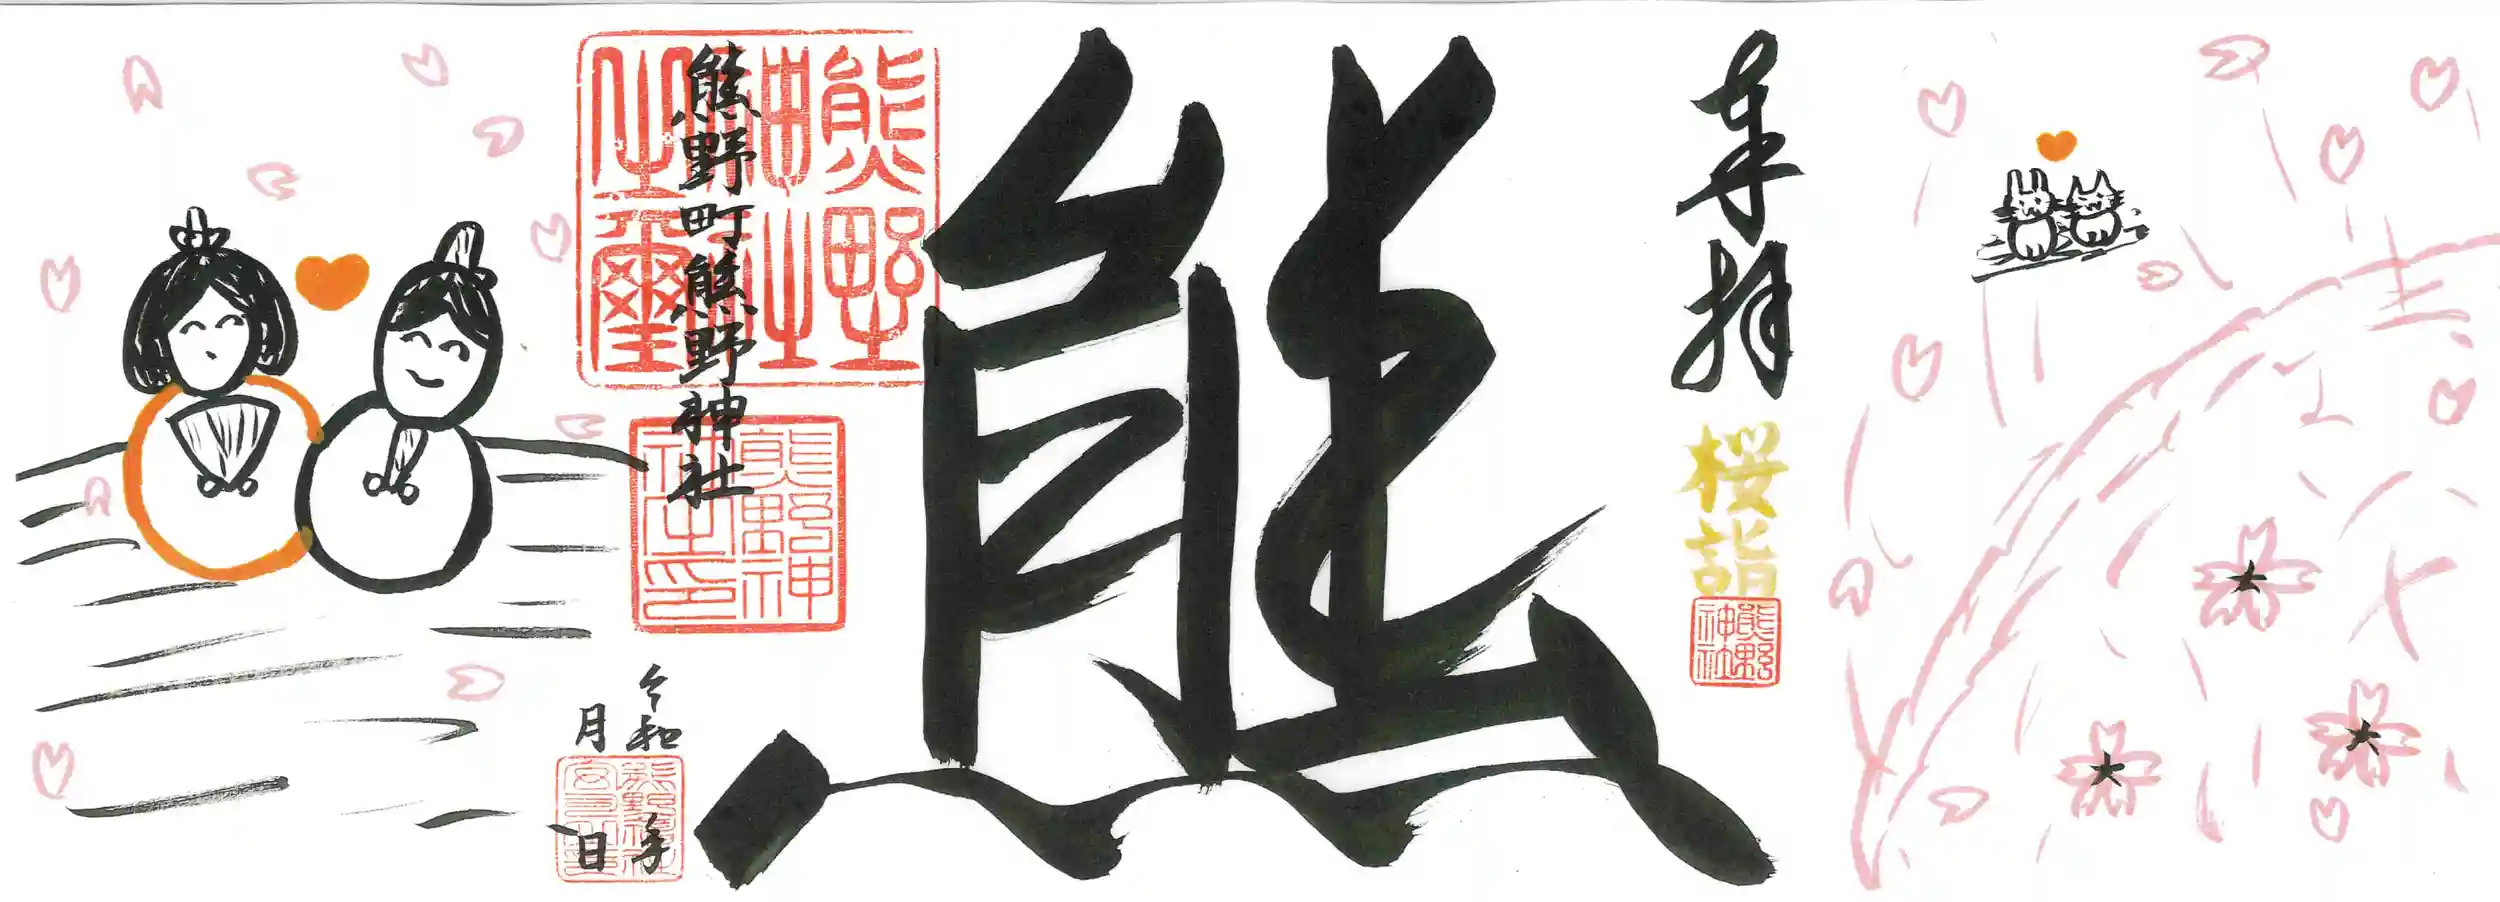 奉拝
桜詣
熊野
神社
熊
熊野
神社
之璽
熊野町熊野神社
熊野神
社之印
令和 年
月 日
熊野神社
宮司之印